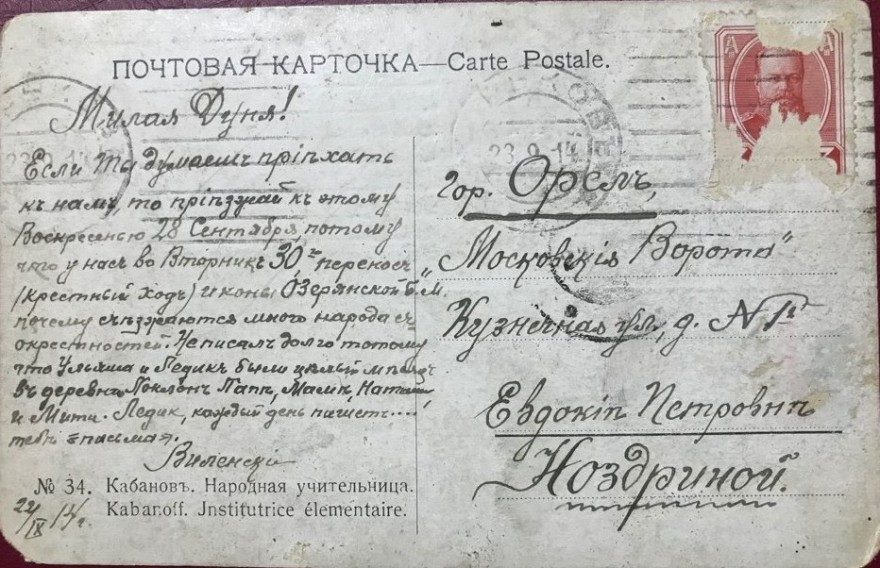 ПОЧТОВАЯ КАРТОЧКА—Carte Postale.
Милая Дуня!
Если ты думаешь пріѣхать
къ намъ, то пріѣзжай къ этому
Воскресенью 28 Сентября, потому
что у насъ во Вторникъ 30го переносъ
(крестный ходъ) иконы Озерянской Б.М.
почему съѣзжаются много народа съ
окрестностей. Не писалъ долго потому
что Ульяша и Ледикъ были цѣлый мѣсяцъ
въ деревнѣ. Поклонъ Папѣ, Мамѣ, Наташѣ,
и Митѣ. Ледик, каждый день пишетъ....
тебѣ письмая.
Виленскій
№ 34. Кабановъ. Народная учительница.
Kabanoff. Jnstitutrice élementaire.
22/IX 14 г.
23 9 14
гор. Орелъ,
Московскія Ворота"
Кузнечная ул., д. №
Евдокіѣ Петровнѣ
Ноздриной.